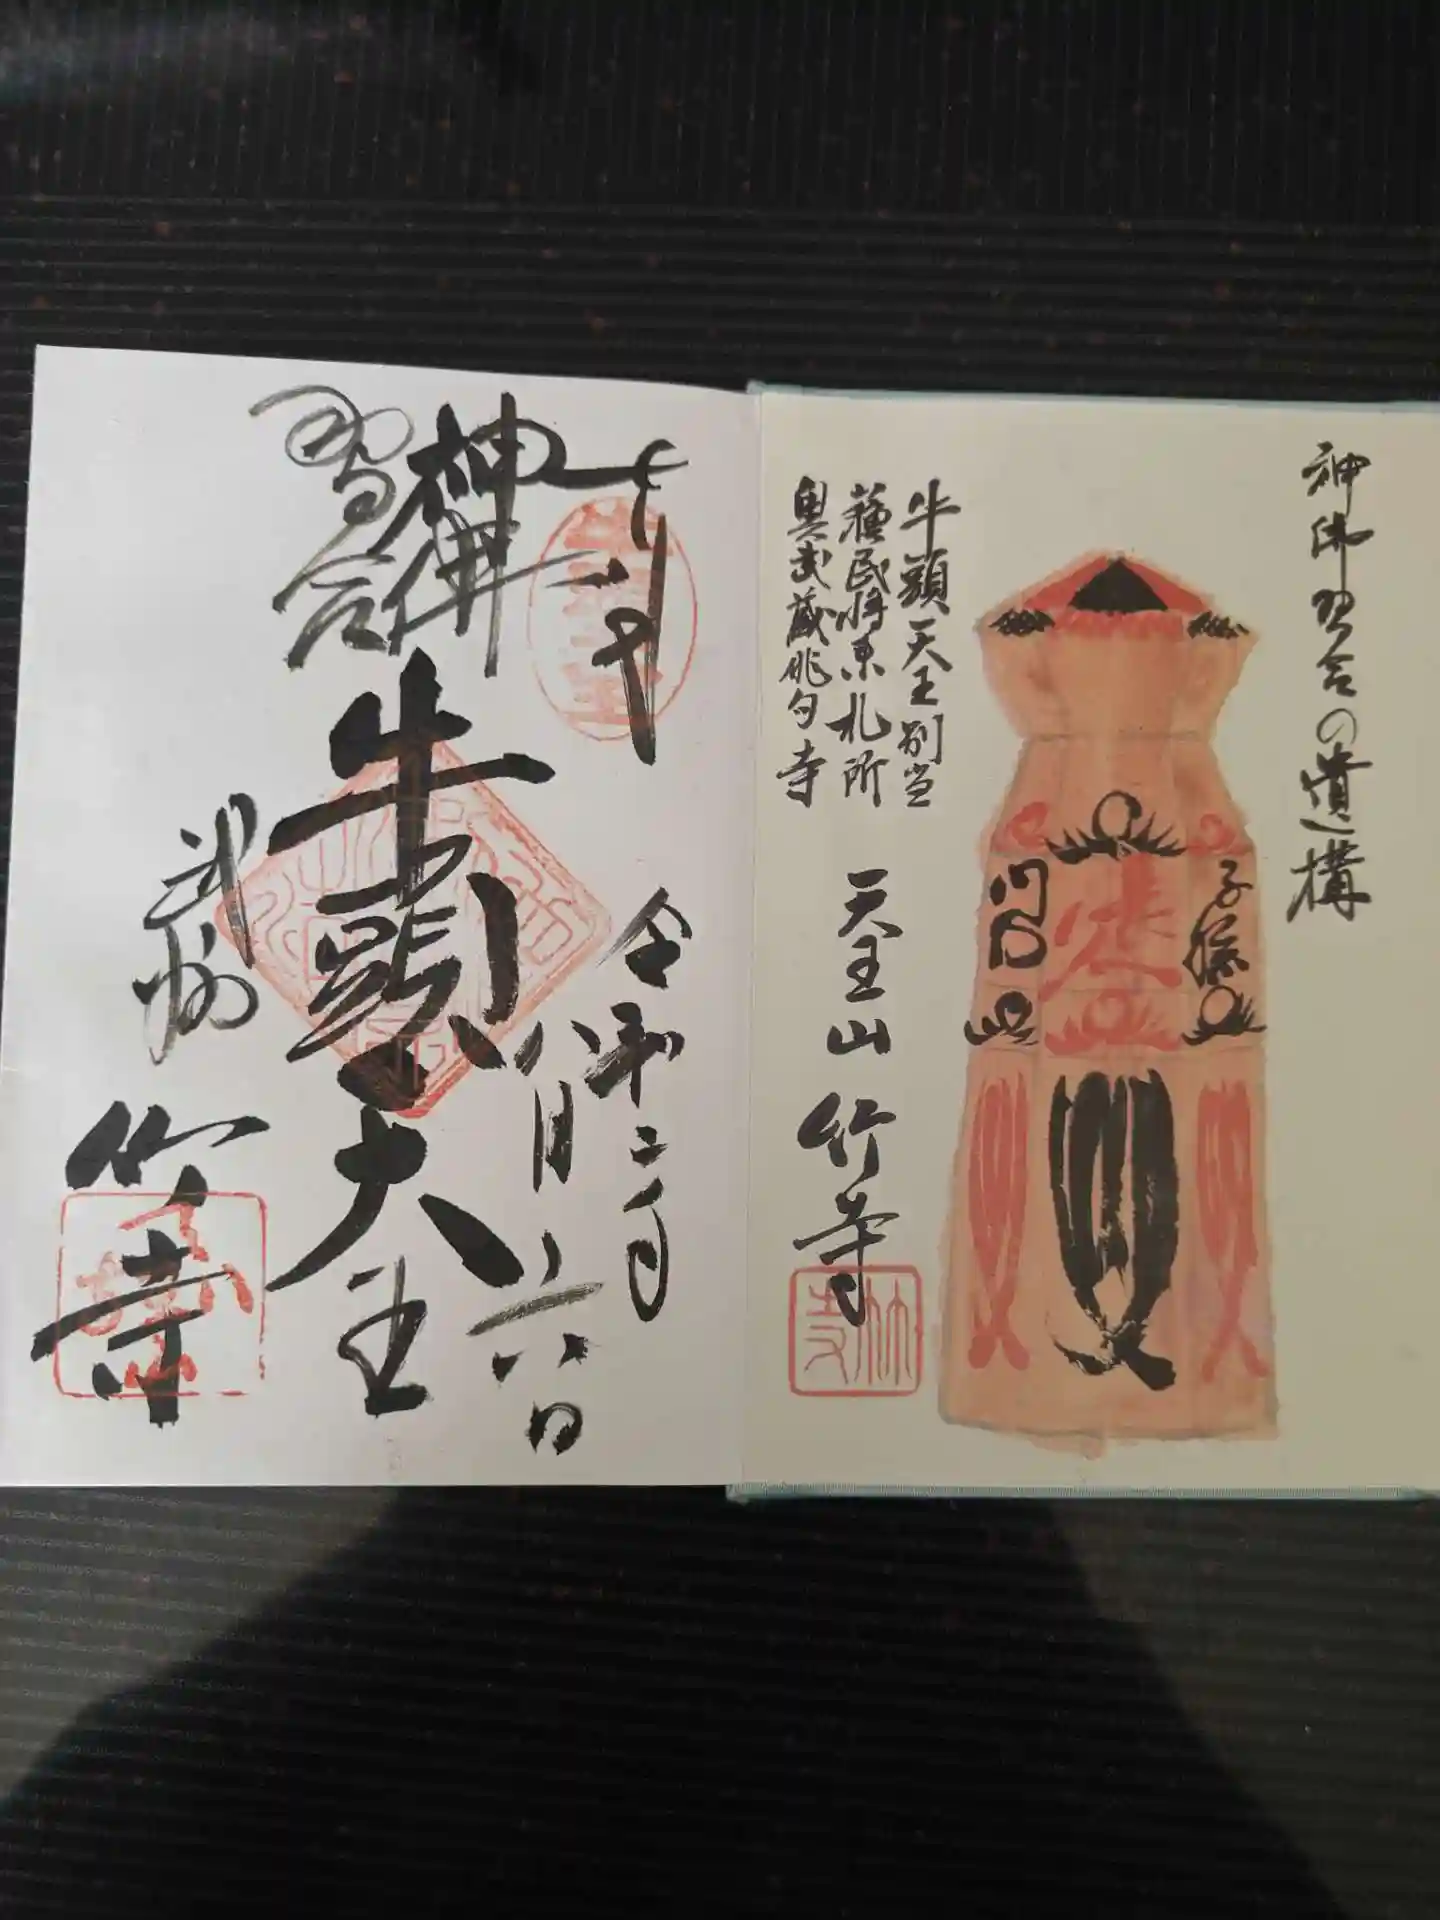 神仏習合の遺構
子孫
門
蘇民将来札所
牛頭天王別当
奥武蔵俳句寺
天王山
竹寺
竹寺
奉拝
令和二年
八月十六日
神仏
習合
牛頭天王
武州
竹寺